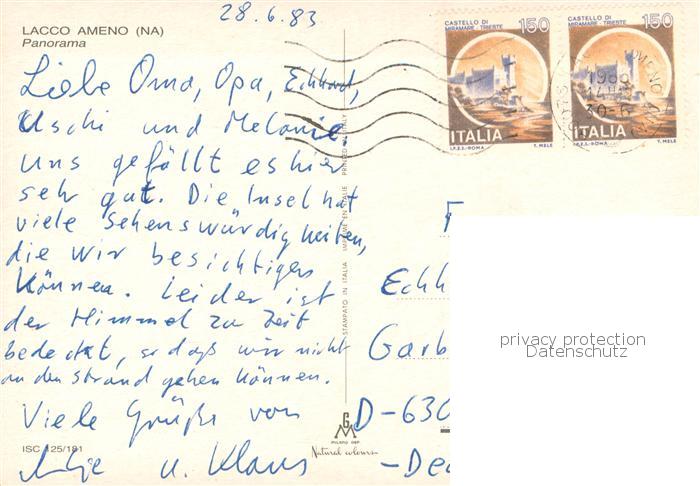 28.6.83
LACCO AMENO (NA)
Panorama
Liebe Oma, Opa, Eckhart,
Uschi und Melanie
uns gefällt es hier
sehr gut. Die Insel hat
viele Sehenswürdigkeiten,
die wir besichtigen
können. Leider ist
der Himmel zu Zeit
bedeckt, so daß wir nicht
an den Strand gehen können.
Viele Grüße von
Antje u. Klaus
ISC 125/181
STAMPATO IN ITALIA IMPRIME EN ITALIE PRINTED IN ITALY
GM
MILANO DEP.
Natural colours
CASTELLO DI
MIRAMARE - TRIESTE
150
ITALIA
I.P.Z.S.-ROMA T. MELE
CASTELLO DI
MIRAMARE - TRIESTE
150
ITALIA
I.P.Z.S.-ROMA T. MELE
F
Eckh
Garb
D-630
-Deu
privacy protection
Datenschutz